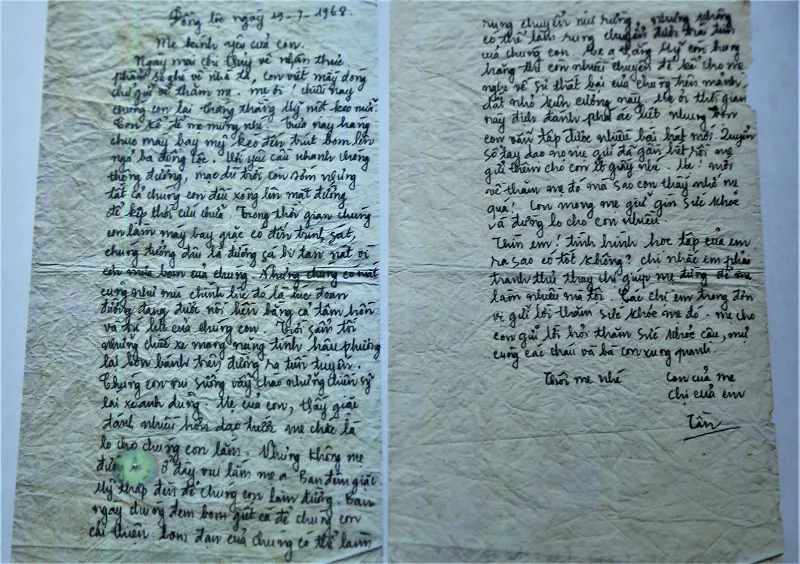 Đồng lộc ngày 19-7-1968.
Mẹ kính yêu của con.
Ngày mai chị Thủy về nhận thực
phẩm sẽ ghé về nhà ta, con viết mấy dòng
chữ gửi về thăm mẹ. mẹ ơi! chiều nay
chúng con lại thắng thằng Mỹ một keo nữa
Con kể để mẹ mừng nhé. Trưa nay hàng
chục máy bay mỹ kéo đến trút bom lên
ngã ba đồng lộc. Với yêu cầu nhanh chóng
thông đường, mặc dù trời còn sớm nhưng
tất cả chúng con đều xông lên mặt đường
để kịp thời cứu chữa. Trong thời gian chúng
con làm máy bay giặc có đến trinh sát,
chúng tưởng đâu là đường sá bị tan nát vì
cơn mưa bom của chúng. Nhưng chúng có
cũng như mù chính lúc đó là lúc đoạn
đường đang được nối liền bằng cả tâm hồn
và trí lực của chúng con. Trời sẩm tối
những chiếc xe mang nặng tình hậu phương
lại bon bánh trên đường ra tiền tuyến.
Chúng con vui sướng vẫy chào những chiến sỹ
lái xe anh dũng. Mẹ của con, thấy giặc
đánh nhiều hơn dạo trước mẹ chắc là
lo cho chúng con lắm. Nhưng không mẹ
ở đây vui lắm mẹ ạ. Ban đêm giặc
Mỹ thắp đèn để chúng con làm đường. Ban
ngày chúng đem bom gửi cá để chúng con
cải thiện. bom đạn của chúng có thể làm
rung chuyển núi rừng nhưng không
có thể làm rung chuyển được trái tim
của chúng con. Mẹ ạ thằng Mỹ còn hung
hăng thì còn nhiều chuyện để kể cho mẹ
nghe về sự thất bại của chúng trên mảnh
đất nhỏ kiên cường này. Mẹ ơi thời gian
này địch đánh phá ác liệt nhưng bọn
con vẫn tập được nhiều bài hát mới. Quyển
sổ tay dạo nọ mẹ gửi đã gần hết rồi mẹ
gửi thêm cho con ít giấy nhé. Mẹ! mới
về thăm mẹ đó mà sao con thấy nhớ mẹ
quá! Con mong mẹ giữ gìn sức khỏe
và đừng lo cho con nhiều.
Thìn em! tình hình học tập của em
ra sao có tốt không? chị nhắc em phải
tranh thủ thay chị giúp mẹ đừng để mẹ
làm nhiều mà tội. Các chị em trong đơn
vị gửi lời thăm sức khỏe mẹ đó. mẹ cho
con gửi lời hỏi thăm sức khỏe cậu, mự
cùng các cháu và bà con xung quanh.
Thôi mẹ nhé
Con của mẹ
Chị của em
Tần